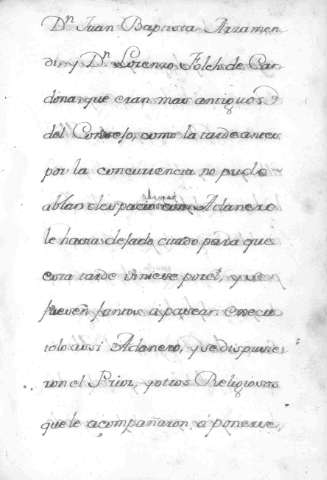 Dn. Juan Baptista Arramen
di, y Dn. Lorenzo Folch de Car
dona que eran mas antiguos
del Consejo, como la tarde antes
por la concurrencia no pudo
ablar despacio con Adanero
le havia dejado citado para que
esta tarde viniese por el, y se
fuesen juntos a pasear. Execu
tolo assi Adanero, y se dispusie
ron el Prior, y otros Religiosos
que le acompañaron á ponerse,